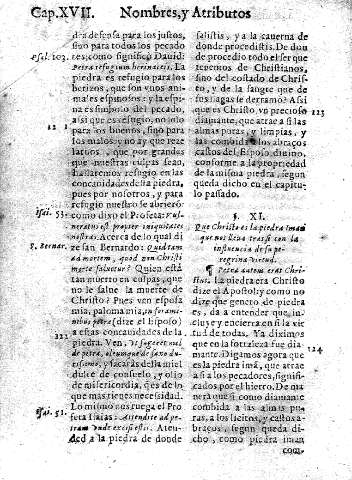 Cap.XVII. Nombres, y Atributos
dra defensa para los justos,
sino para todos los pecado
Psal. 103. res, como significò Dauid:
Petra refugium herinacijs. La
piedra es refugio para los
herizos, que son vnos ani
males espinosos: y la espi
na es simbolo del pecado.
121 Assi que esta piedra, no solo
para los buenos, sino para
los malos: y no ay que reze
laros, que por grandes
que nuestras culpas sean,
hallaremos refugio en las
concauidades desta piedra,
pues por nosotros, y para
refugio nuestro se abrierõ:
Isai. 53. como dixo el Profeta: Vul
neratus est propter iniquitates
nostras. Acerca de lo qual di
S. Bernar. ze san Bernardo: Quid tam
ad mortem, quod non Christi
morte saluetur? Quien està
tan muerto en culpas, que
no le salue la muerte de
Christo? Pues ven esposa
mia, paloma mia, in forami
nibus petræ (dize el Esposo)
122 a estas concauidades de la
piedra. Ven, Vt sugeret mel
de petra, oleumque de saxo du
rissimo, y sacaràs della miel
dulce de consuelo, y olio
de misericordia, q̃ es de lo
que mas tienes necesidad.
Lo mismo nos ruega el Pro
Isai. 51. feta Isaias: Attendite ad pe
tram vnde excisi estis. Aten-
ded a la piedra de donde
salistis, y a la cauerna de
donde procedistis. De don
de procedio todo el ser que
tenemos de Christianos,
sino del costado de Chris-
to, y de la sangre que de
sus llagas se derramò? Assi
que es Christo vn precioso 123
diamante, que atrae a si las
almas puras, y limpias, y
las combida a los abraços
castos del Esposo diuino,
conforme a la propriedad
de la misma piedra, segun
queda dicho en el capitu
lo passado.
§. XI.
Que Christo es la piedra iman
que nos lleua tras si con la
influencia de su pe-
regrina virtud.
¶ Petra autem erat Chri-
stus. La piedra era Christo
dize el Apostol: y como no
dize que genero de piedra
es, da a entender que in-
cluye y encierra en si la vir
tud de todas. Ya diximos
que en la fortaleza fue dia
mante. Digamos agora que 124
es la piedra imã, que atrae
a si a los pecadores, signifi-
cados por el hierro. De ma
nera que si como diamante
combida a las almas pu-
ras, a los licitos, y castos a-
braços, segun queda di-
cho, como piedra iman
com-